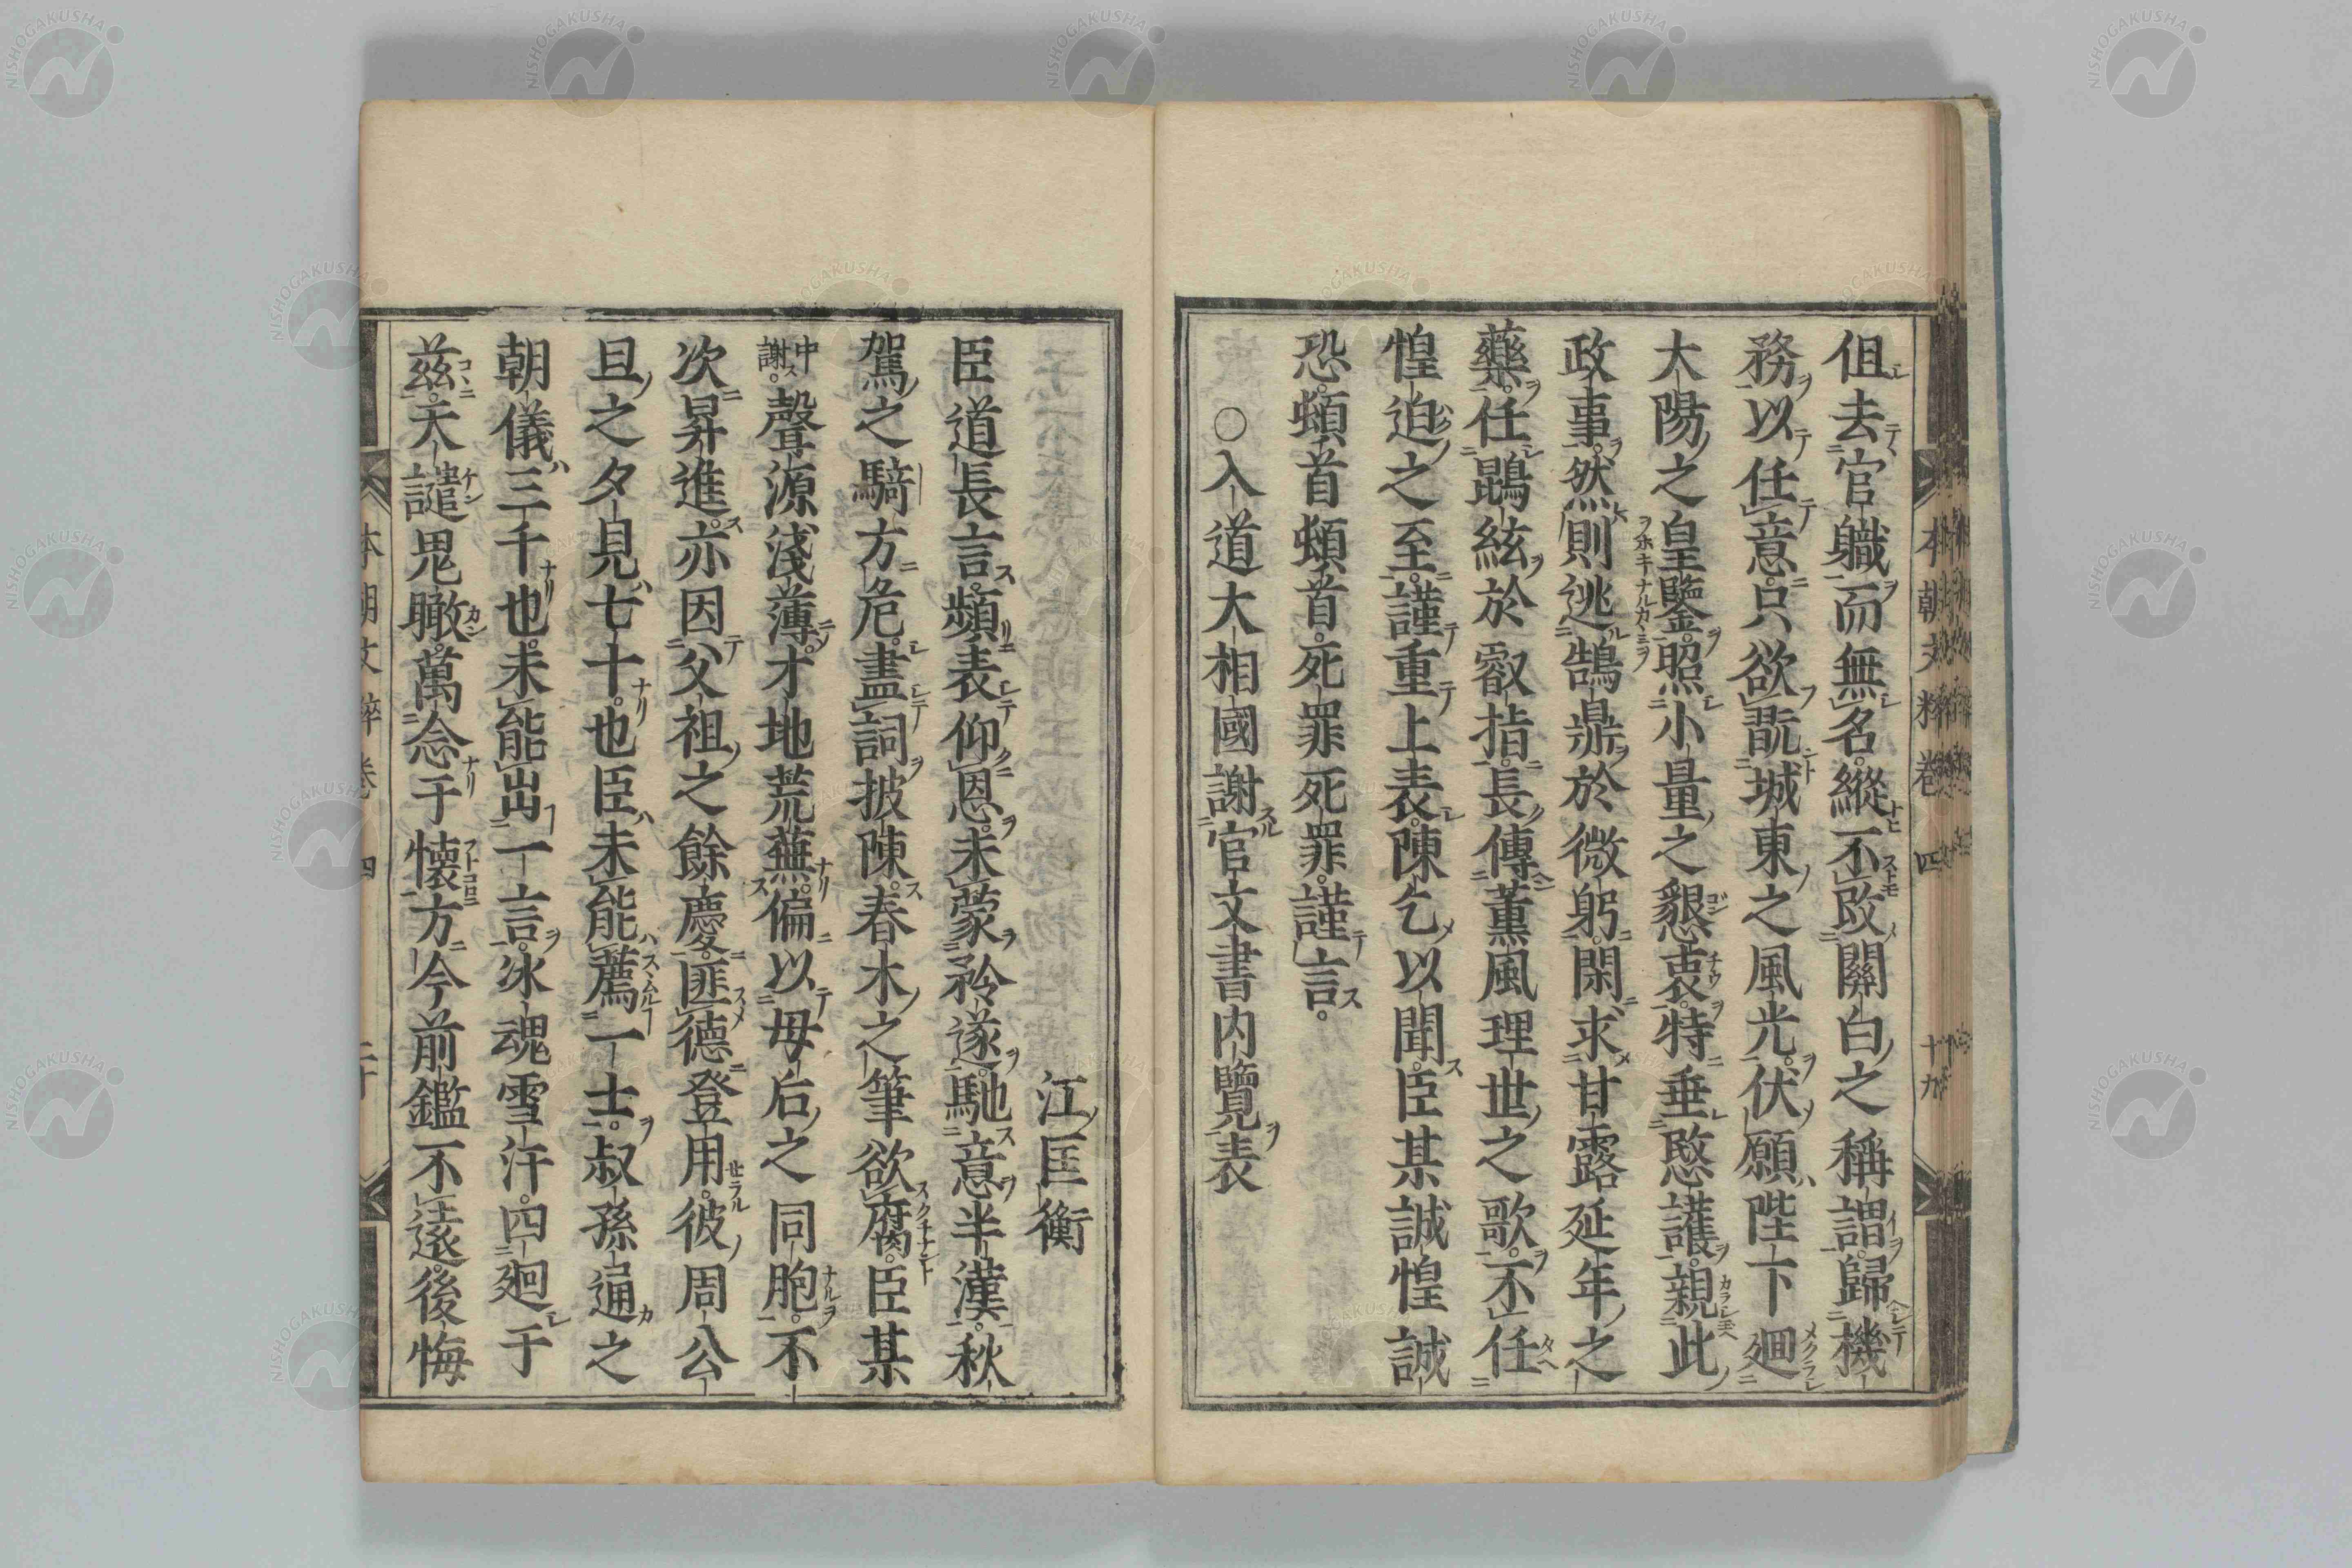 伹去官職而無名。縱不改關白之稱謂。歸機
務以任意。只欲翫城東之風光。伏願陛下廻
大陽之皇鑒。照小量之懇衷。特垂愍護。親此
政事。然則逃鵠鼎於微躬。閑求甘露延年之
藥。任鵾絃於叡指。長傳薫風理世之歌。不任
惶迫之至。謹重上表。陳乞以聞。臣某誠惶誠
恐。頓首頓首。死罪死罪。謹言。
○入道大相國謝官文書内覽表
江匡衡
臣道長言。頻表仰恩。未蒙矜遂。馳意半漢。秋
駕之騎方危。盡詞披陳。春木之筆欲腐。臣某
中謝。聲源淺薄。才地荒蕪。偏以母后之同胞。不
次昇進。亦因父祖之餘慶。匪德登用。彼周公
旦之夕見七十。也臣未能薦一士。叔孫通之
朝儀三千也。未能出一言。氷魂雪汗。四廻于
茲。天譴鬼瞰。萬念于懷。方今前鑑不遠。後悔
本朝文粹卷四 十九
本朝文粹卷四 二十
NISHOGAKUSHA